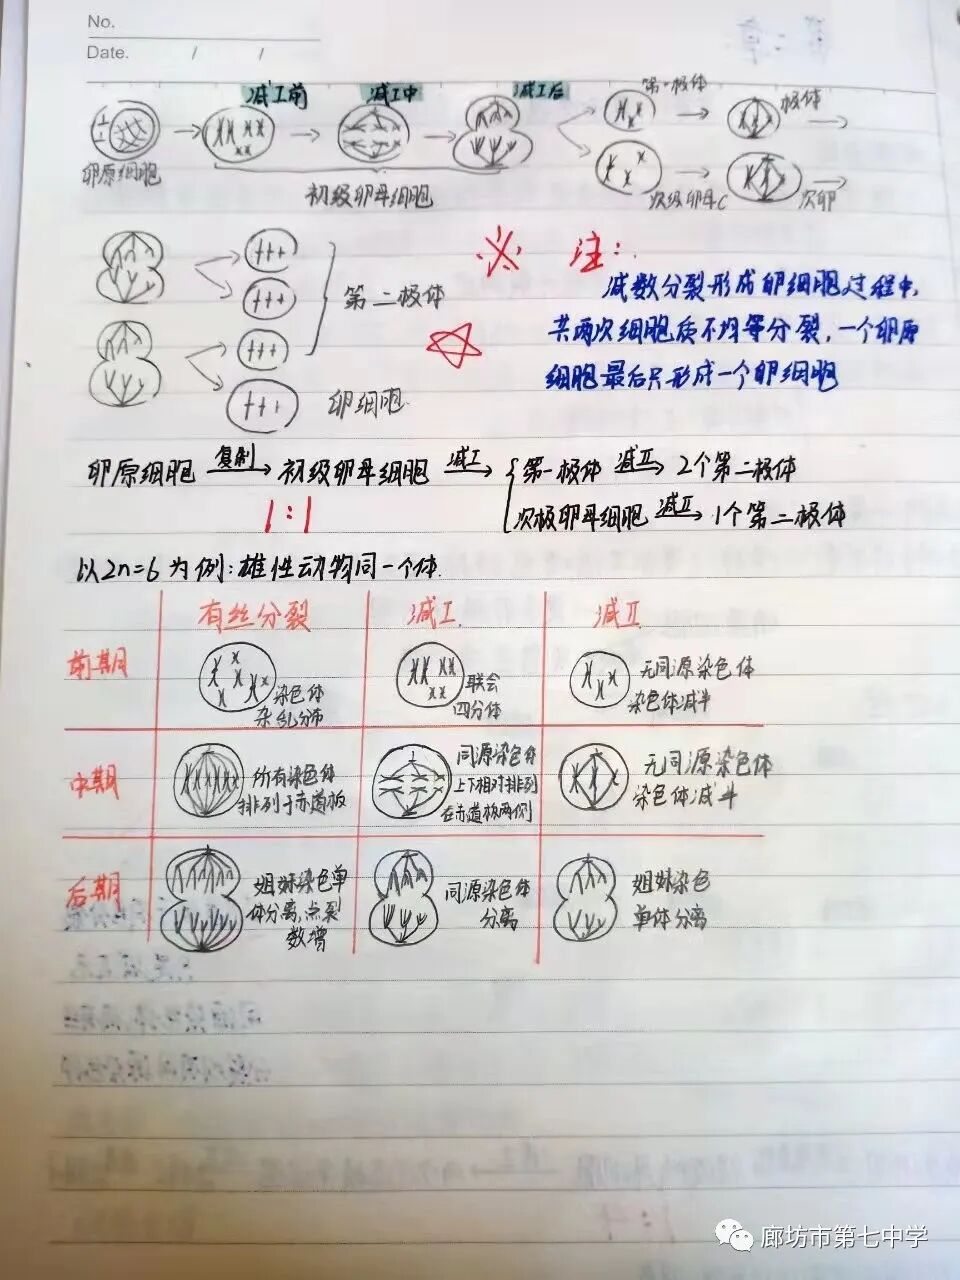 No.
Date. / /
减I前 减I中 减I后 第一极体 极体
卵原细胞 初级卵母细胞 次级卵母C 次卵
第二极体
卵细胞
※ 注:
减数分裂形成卵细胞过程中,
共两次细胞质不均等分裂,一个卵原
细胞最后只形成一个卵细胞
卵原细胞 复制→ 初级卵母细胞 减I→ {第一极体 减II→ 2个第二极体
次极卵母细胞 减II→ 1个第二极体
1:1
以2n=6为例:雄性动物同一个体.
有丝分裂 减I. 减II
前期 染色体 联会 无同源染色体
杂乱分布 四分体 染色体减半
中期 所有染色体 同源染色体 无同源染色体
排列于赤道板 上下相对排列 染色体减半
在赤道板两侧
后期 姐妹染色单 同源染色体 姐妹染色
体分离,点裂 分离 单体分离
数增
廊坊市第七中学